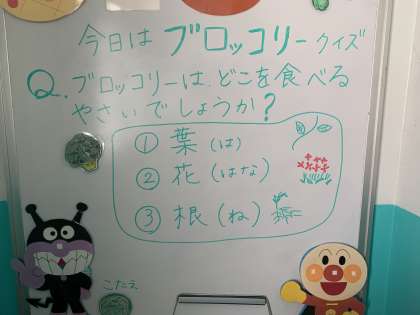 今日は ブロッコリー クイズ
Q. ブロッコリーは、どこを食べる
やさいでしょうか?
① 葉 (は)
② 花 (はな)
③ 根 (ね)
こたえ